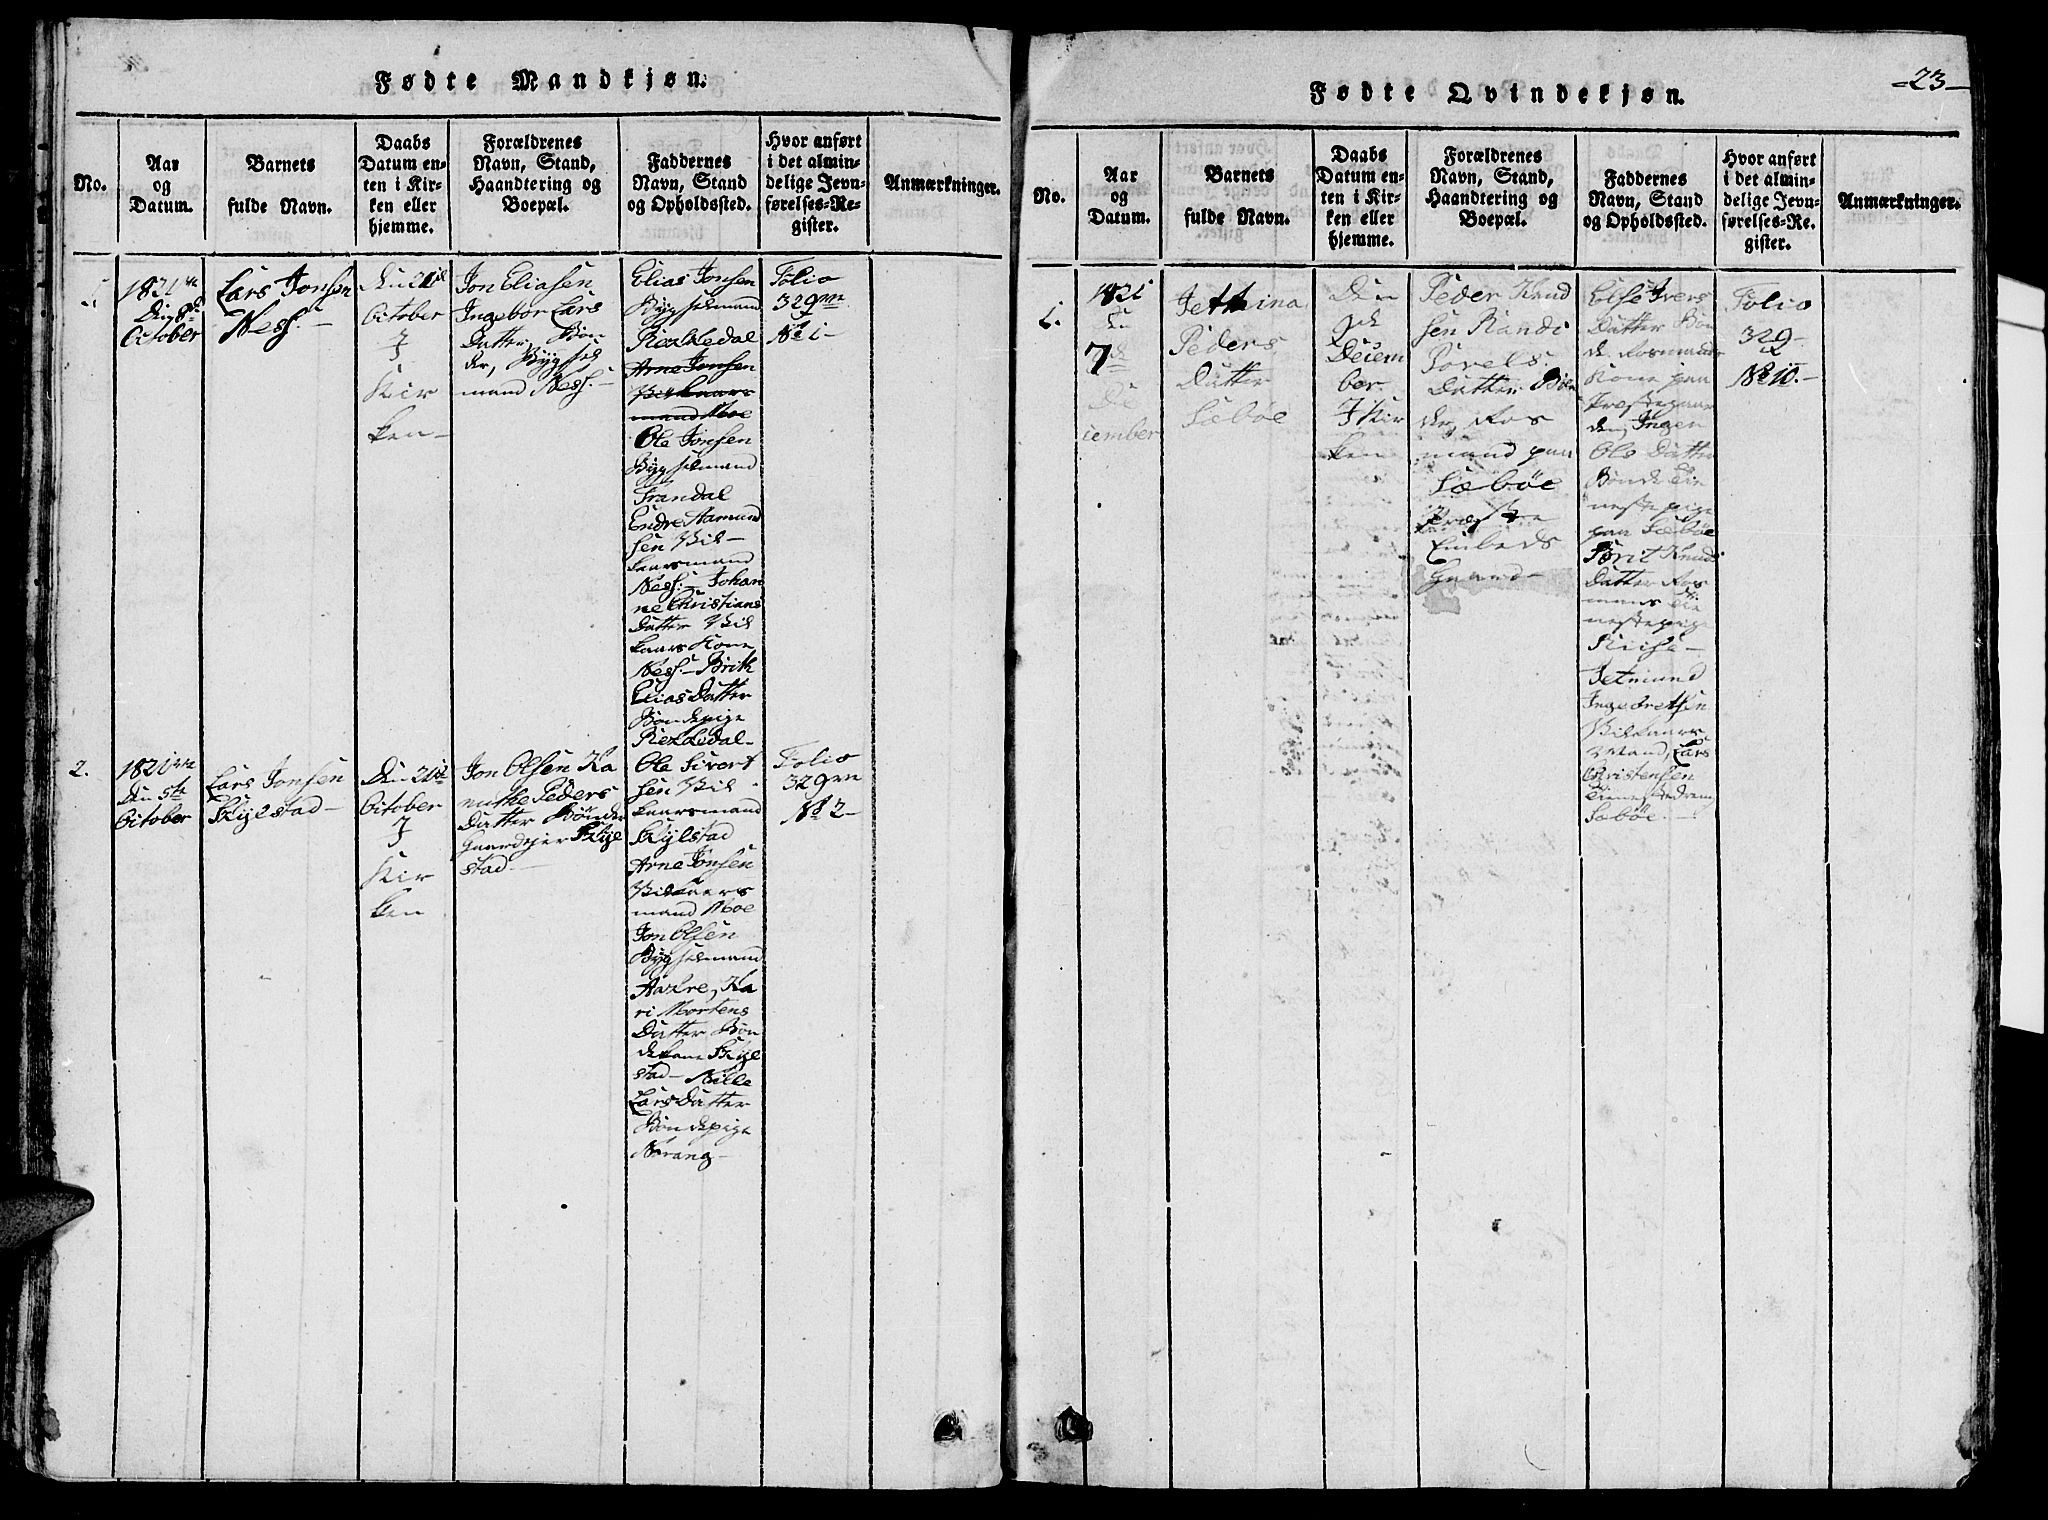 Fødte Mandkjøn.
No.
Aar
og
Datum.
Barnets
fulde Navn.
Daabs
Datum en-
ten i Kir-
ken eller
hjemme.
Forældrenes
Navn, Stand,
Haandtering og
Boepæl.
Faddernes
Navn, Stand
og Opholdssted.
Hvor anført
i det almin-
delige Jevn-
førelses-Re-
gister.
Anmærkninger.
1821
Den 8d
October
Lars Jonsen
Ness.-
Den 21
October
I
Kir
ken-
Jon Eliasen
Ingebor Lars
Datter, Bøn
der, Bygsel
mand Ness.-
Elias Jonsen
Bygselmand
Rekkedal
Arne Jonsen
Vilkaars
mand Moe
Ole Jonsen
Bygselmand
Trandal
Endre Aamund
sen Vil-
kaarsmand
Ness.- Johan
ne Christians
Datter Vil
kaars Kone
Ness.- Brith
Elias Datter
Bondepige
Rekkedal-
Folio
329
No 1-
2.
1821
Den 5te
October
Lars Jonsen
Skylstad-
Den 21
October
I
Kir
ken
Jon Olsen Ka
nuthe Peders
Datter Bønder
Gaardejer Skyl
stad-
Ole Sivert
sen Vil
kaarsmand
Skylstad
Arne Jonsen
Vilkaars
mand Moe
Jon Olsen
Bygselmand
Aakre, Ka
ri Mortens
Datter Bon
dekone Skyl
stad- Nille
Lars Datter
Bondepige
Norang-
Folio
329
No 2-
-23-
Fødte Qvindekjøn.
No.
Aar
og
Datum.
Barnets
fulde Navn.
Daabs
Datum en-
ten i Kir-
ken eller
hjemme.
Forældrenes
Navn, Stand,
Haandtering og
Boepæl.
Faddernes
Navn, Stand
og Opholdssted.
Hvor anført
i det almin-
delige Jevn-
førelses-Re-
gister.
Anmærkninger.
1.
1821
Den
7de
De
cember
Jethina
Peders
Datter
Sæbøe
Den
9de
Decem
ber
I Kir
ken
Peder Knud
sen Randi
Povels
Datter Bøn
der,
mand paa
Sæbøe
Præste
Embeds
Gaard-
Else Ivers
Datter Bon
de
Kone paa
Præstegaar
den, Inger
Ols Datter
Bonde Tie
nestepige
paa Sæbøe
Sørit Knuds
Datter
mans Tie
nestepige
Riise-
Jetmund
Ingebretsen
Vilkaars
Mand, Lars
Christensen
Tienestedreng
Sæbøe.-
Folio
329-
No 10.-